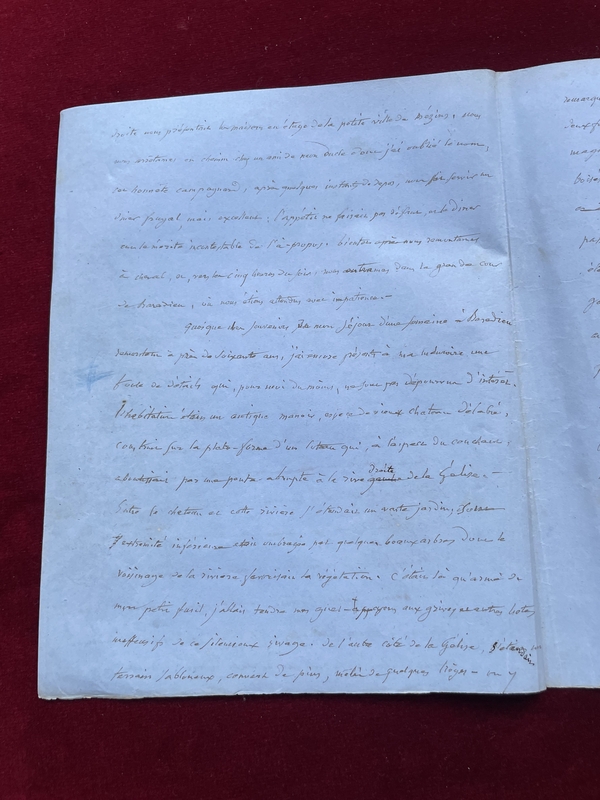 droite nous présentait les maisons en étage de la petite ville de Mézin ; nous
nous arrêtames en chemin chez un ami de mon oncle dont j'ai oublié le nom,
cet honnête campagnard, après quelques instants de repos, nous fit servir un
diner frugal mais excellent : l'appétit ne faisait pas défaut, et le diner
eut le mérite incontestable de l'à-propos. bientôt après nous remontames
à cheval, et, vers les cinq heures du soir, nous entrames dans la grande cour
de Baradieu, où nous étions attendus avec impatience. —
quoique les souvenirs de mon séjour d'une semaine à Baradieu
remontent à près de soixante ans, j'ai encore présents à ma mémoire une
foule de détails qui, pour moi du moins, ne sont pas dépourvus d'intérêt.
L'habitation était un antique manoir, espèce de vieux chateau délabré,
construit sur la plate-forme d'un coteau qui, à l'aspect du couchant,
aboutissait par une pente abrupte à la rive droite de la Gélise. —
Entre le chateau et cette rivière s'étendait un vaste jardin, dont
l'extrémité inférieure était ombragée par quelques beaux arbres dont le
voisinage de la rivière favorisait la végétation. C'était là qu'armé de
mon petit fusil, j'allais tendre mes guet-appens aux grives et autres hotes
inoffensifs de ce silencieux rivage. de l'autre côté de la Gélise, s'étendait un
terrain sablonneux, couvert de pins, mêlés de quelques lièges — on y